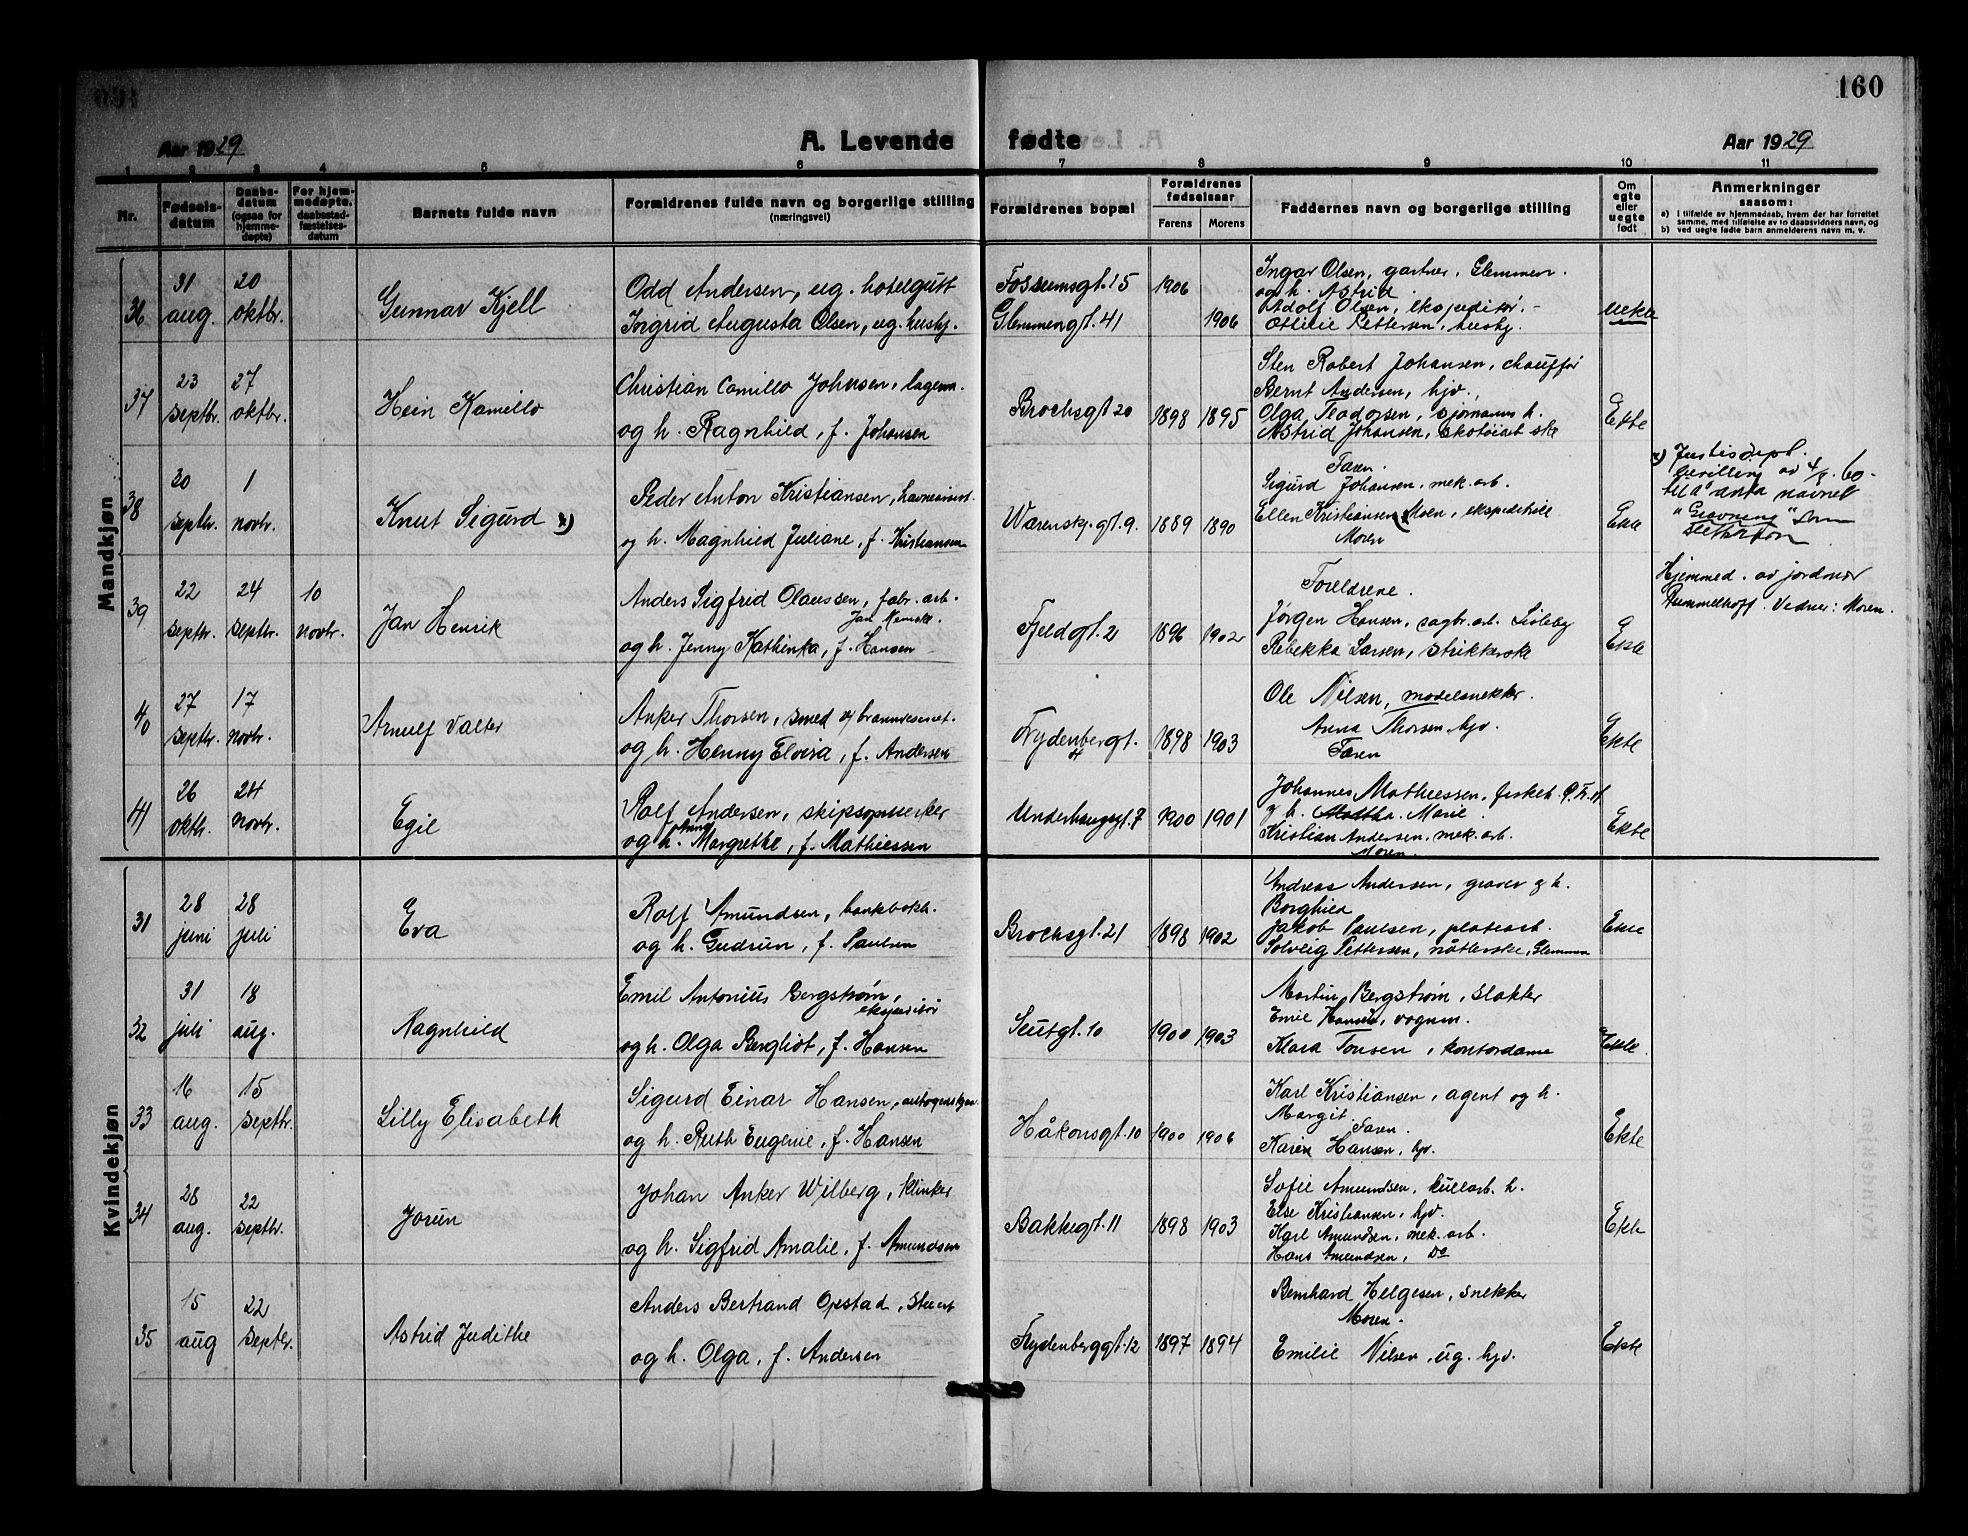 160
Aar 1929
A. Levende fødte
Aar 1929
1 2 3 4 5 6 7 8 9 10 11
Nr.
Fødsels-
datum
Daabs-
datum
(ogsaa for
hjemme-
døpte)
For hjem-
medøpte,
daabsstad-
fæstelses-
datum
Barnets fulde navn
Forældrenes fulde navn og borgerlige stilling
(næringsvei)
Forældrenes bopæl
Forældrenes
fødselsaar
Farens Morens
Faddernes navn og borgerlige stilling
Om
egte
eller
uegte
født
Anmerkninger
saasom:
a) i tilfælde av hjemmedaab, hvem der har forrettet
samme, med tilføielse av to daabsvidners navn, og
b) ved uegte fødte barn anmelderens navn m. v.
Mandkjøn
36
31
aug.
20
oktbr.
Gunnar Kjell
Odd Andersen, ug. hotelgutt
Ingrid Augusta Olsen, ug. hushj.
Fossumsgt. 15
Glemmengt. 41
1906
1906
Ingar Olsen, gartner, Glemmen.
og h. Astrid.
Adolf Olsen, ekspeditør.
Ottilie Pettersen, hushj.
uekte
37
23
septbr.
27
oktbr.
Hein Kamillo
Christian Camillo Johnsen, lagerm.
og h. Ragnhild, f. Johansen
Brochsgt. 20
1898 1895
Sten Robert Johansen, chauffør
Bernt Andersen, hjv.
Olga Teodorsen, sjømanns h.
Astrid Johansen, skotøiarb.ske
Ekte
38
20
septbr.
1
novbr.
Knut Sigurd x)
Peder Anton Kristiansen, havnearb.
og h. Magnhild Juliane, f. Kristiansen
Wærenskj. gt. 9.
1889 1890
Faren.
Sigurd Johansen, mek. arb.
Ellen Kristiansen Moen, ekspeditrise
Moren
Ekte
x) Justisdept.
bevilling av 4/8. 60-
til å anta navnet
"Grövning" som
slektsnavn
39
22
septbr.
24
septbr.
10
novbr.
Jan Henrik
Anders Sigfrid Olaussen, fabr. arb.
og h. Jenny Kathinka, f. Hansen
Fjeldgt. 2
1896 1902
Foreldrene.
Jørgen Hansen, sagbr. arb. Lisleby
Rebekka Larsen, strikkerske
Ekte
Hjemmed. av jordmor
Rummelhoff. Vedner: Moren.
40
27
septbr.
17
novbr.
Arnulf Valter
Anker Thorsen, smed v/ brannvesenet.
og h. Henny Elvira, f. Andersen
Frydenbergt.
1898 1903
Ole Nilsen, modelsnekker.
Anna Thorsen, hjv.
Faren
Ekte
41
26
oktbr.
24
novbr.
Egil
Rolf Andersen, skipsopmerker
og h. Anna Margrethe, f. Mathiessen
Underhaugsgt. 7
1900 1901
Johannes Mathiessen, fiskeh.
og h. Marie.
Kristian Andersen, mek. arb.
Moren.
Ekte
Kvindekjøn
31
28
juni
28
juli
Eva
Rolf Amundsen, bankbokh.
og h. Gudrun, f. Paulsen
Brochsgt. 21
1898 1902
Andreas Andersen, graver og h.
Borghild
Jakob Paulsen, platearb.
Solveig Pettersen, nåtlerske, Glemmen
Ekte
32
31
juli
18
aug.
Ragnhild
Emil Antonius Bergstrøm,
ekspeditør
og h. Olga Bergliot, f. Hansen
Seutgt. 10
1900 1903
Martin Bergstrøm, slakter
Emil Hansen, vognm.
Klara Tonsen, kontordame
Ekte
33
16
aug.
15
septbr.
Lilly Elisabeth
Sigurd Einar Hansen,
og h. Ruth Eugenie, f. Hansen
Håkonsgt. 10
1900 1906
Karl Kristiansen, agent og h.
Margit.
Faren.
Karen Hansen, hjv.
Ekte
34
28
aug.
22
septbr.
Jorun
Johan Anker Wilberg, klinker
og h. Sigfrid Amalie, f. Amundsen
Bakkegt. 11
1898 1903
Sofie Amundsen, kullarb. h.
Else Kristiansen, hjv.
Karl Amundsen, mek. arb.
Hans Amundsen, Do
Ekte
35
15
aug
22
septbr.
Astrid Judithe
Anders Bertrand Opstad, stuert
og h. Olga, f. Andersen
Frydenberggt. 12
1897 1894
Bernhard Helgesen, snekker
Moren.
Emilie Nilsen, ug. hjv.
Ekte